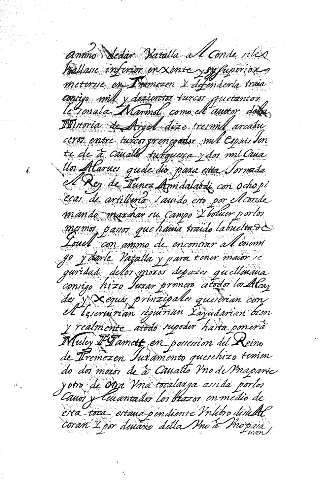 animo de dar Vatalla al Conde si le
hallase inferior en xente y si superior
meterse en Tremezen y defenderla traia
consigo mil y dozientos turcos que tantos
le señala Marmol, como el autor de la
Historia de Argel dize tres mil arcabu
ceros entre turcos y renegados mil espais xen
te de a cavallo turquesca y dos mil cava
llos Moros que le dio para esta Jornada
el Rey de Tunez con ocho pie
cas de artilleria sabido esto por el conde
mando marchar su campo y bolver por los
mismos pasos que havia traido la buelta de
con animo de encontrar al enemi
go y darle Vatalla y para tener maior se
guridad de los moros de pazes que llevava
consigo hizo Jurar primero a todos los Alcay
des y Xeques principales que serian con
el le servirian seguirian y ayudarian bien
y realmente a todo su poder hasta poner a
Muley Hamete en posesion del Reino
de Tremezen Juramento que se hizo tenien
do dos moros de a Cavallo Uno de una parte
y otro de otra Una toca larga asida por los
cavos y levantados los brazos en medio de
esta toca estava pendiente Un libro del Al
coran y por devaxo della Uno a Uno pasa
van